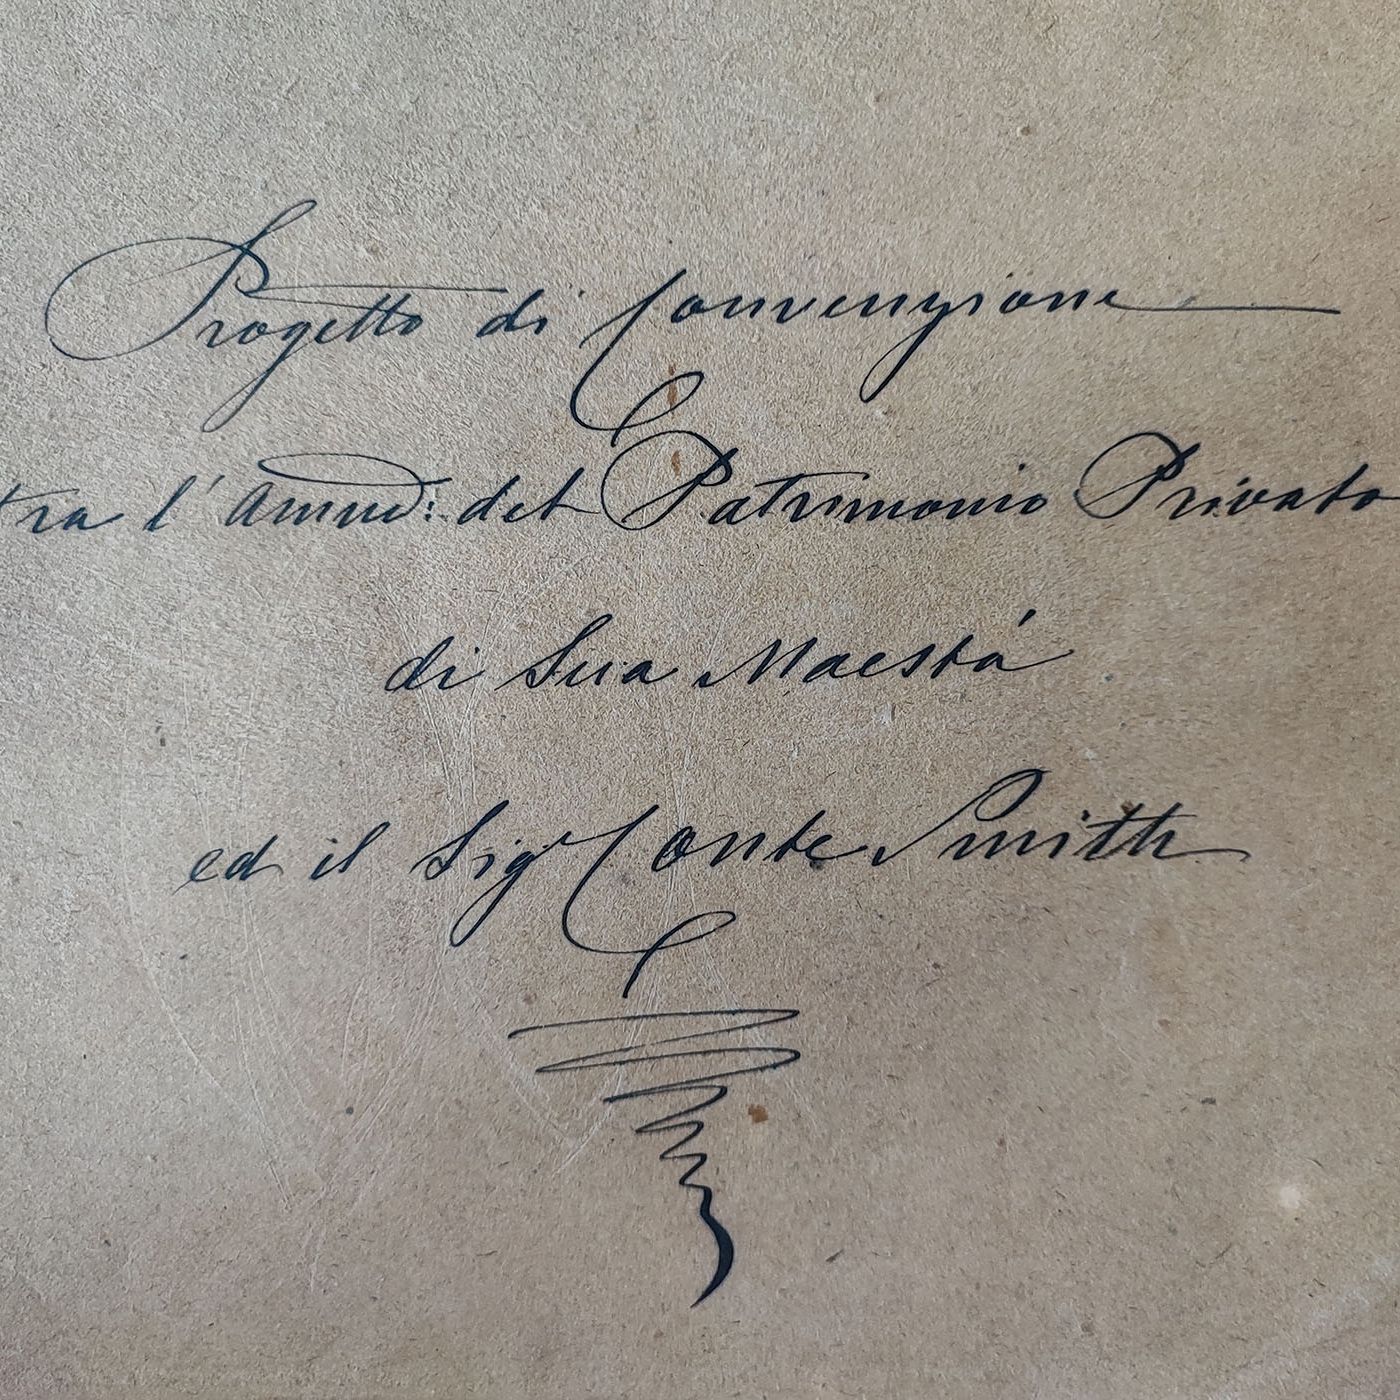 Progetto di Convenzione
tra l' Ammne: del Patrimonio Privato
di Sua Maestá
ed il Sigr Conte Smith